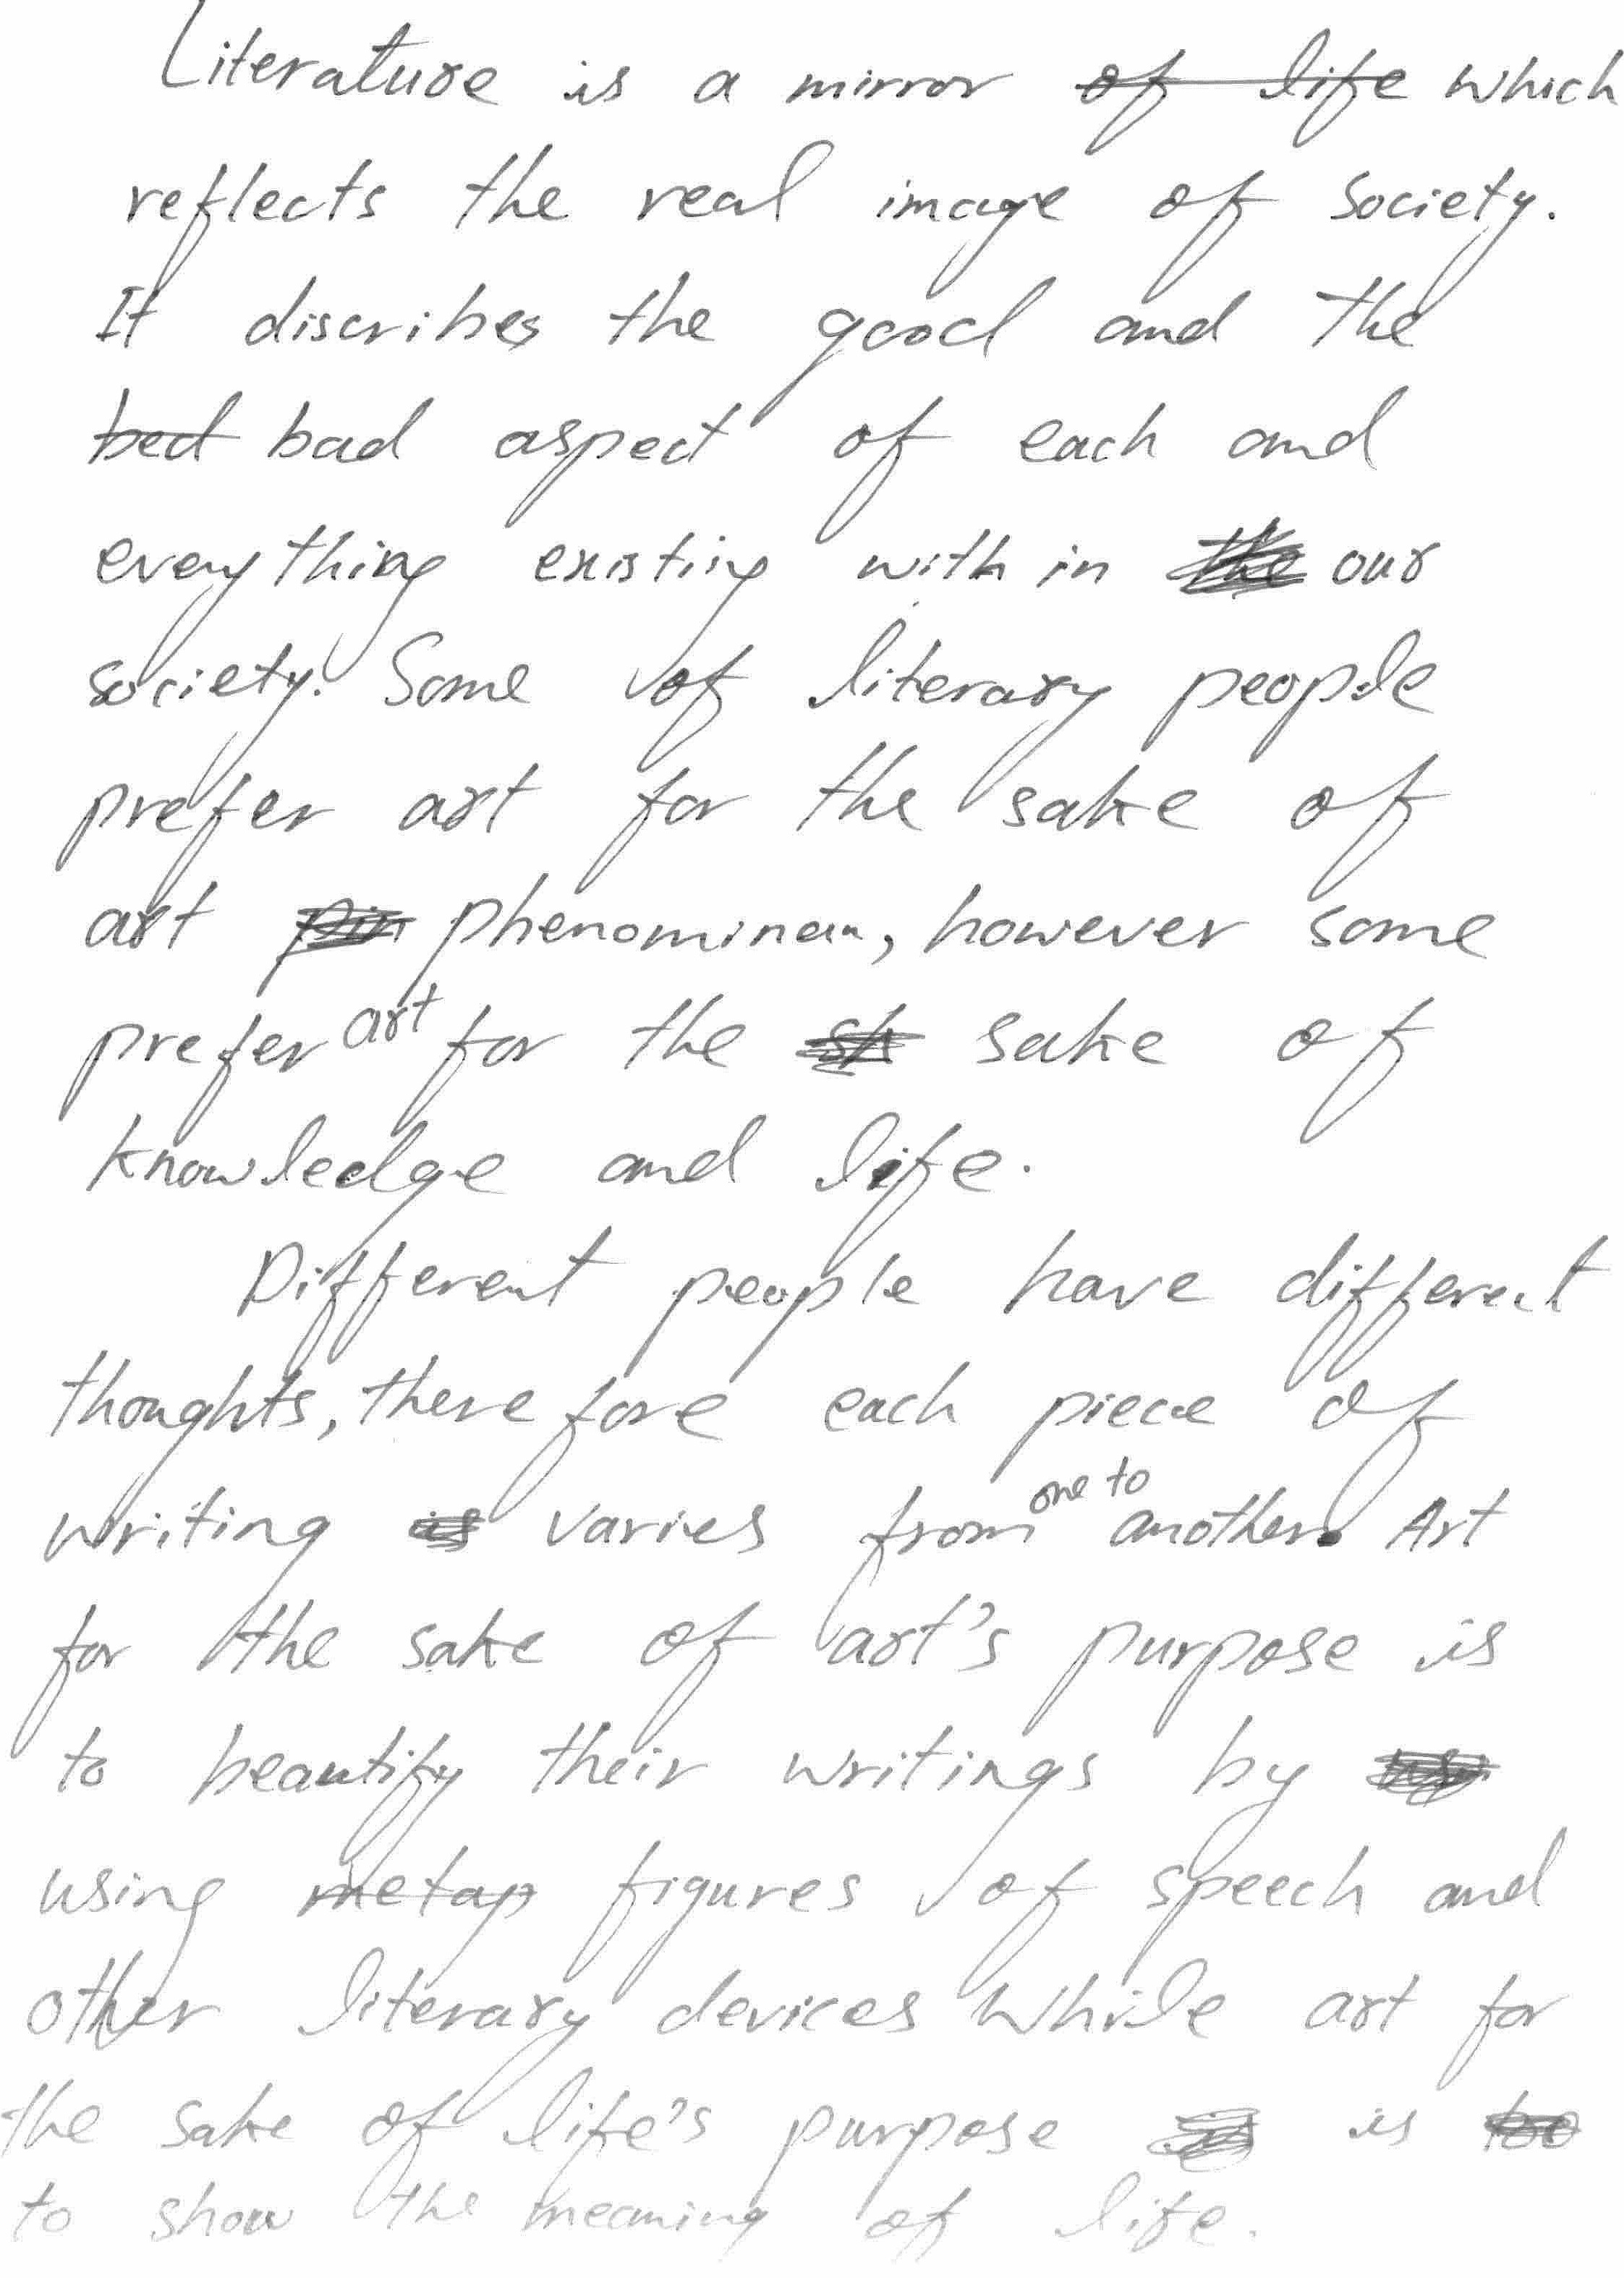 Literature is a mirror of life which
reflects the real image of society.
It discribes the good and the
bed bad aspect of each and
everything existing with in the our
society. Some of literary people
prefer art for the sake of
art phenominan, however some
prefer art for the sake of
knowledge and life.
Different people have different
thoughts, therefore each piece of
writing is varies from one to another. Art
for the sake of art's purpose is
to beautify their writings by
using metap figures of speech and
other literary devices while art for
the sake of life's purpose is too
to show the meaning of life.